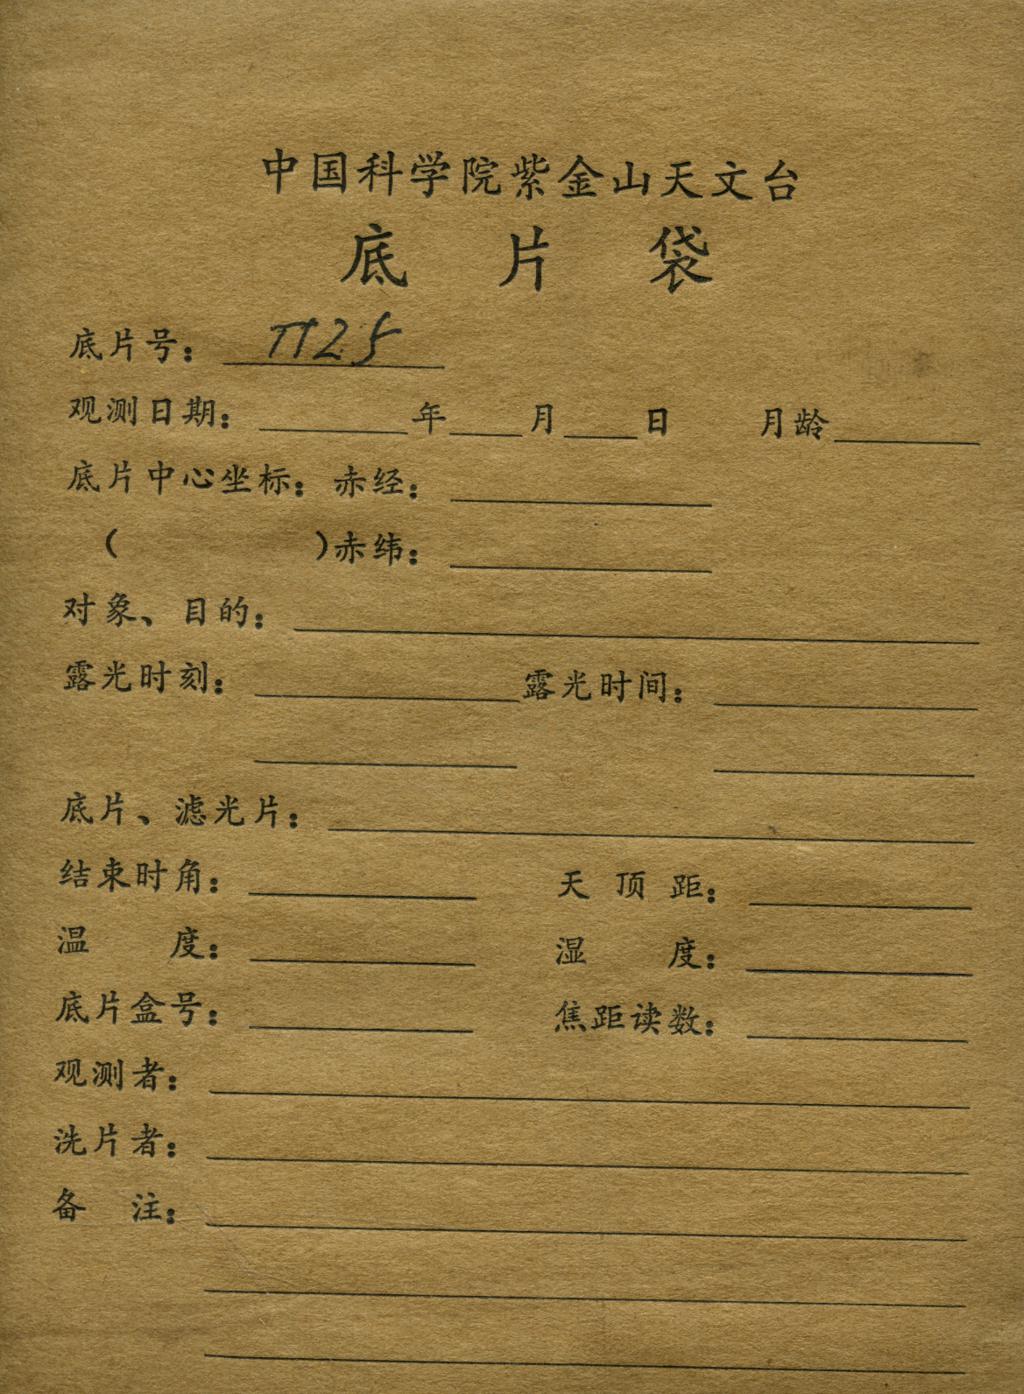 中国科学院紫金山天文台
底片袋
底片号： TT25
观测日期： 年 月 日 月龄
底片中心坐标：赤经：
（ ）赤纬：
对象、目的：
露光时刻： 露光时间：
底片、滤光片：
结束时角： 天顶距：
温度： 湿度：
底片盒号： 焦距读数：
观测者：
洗片者：
备注：